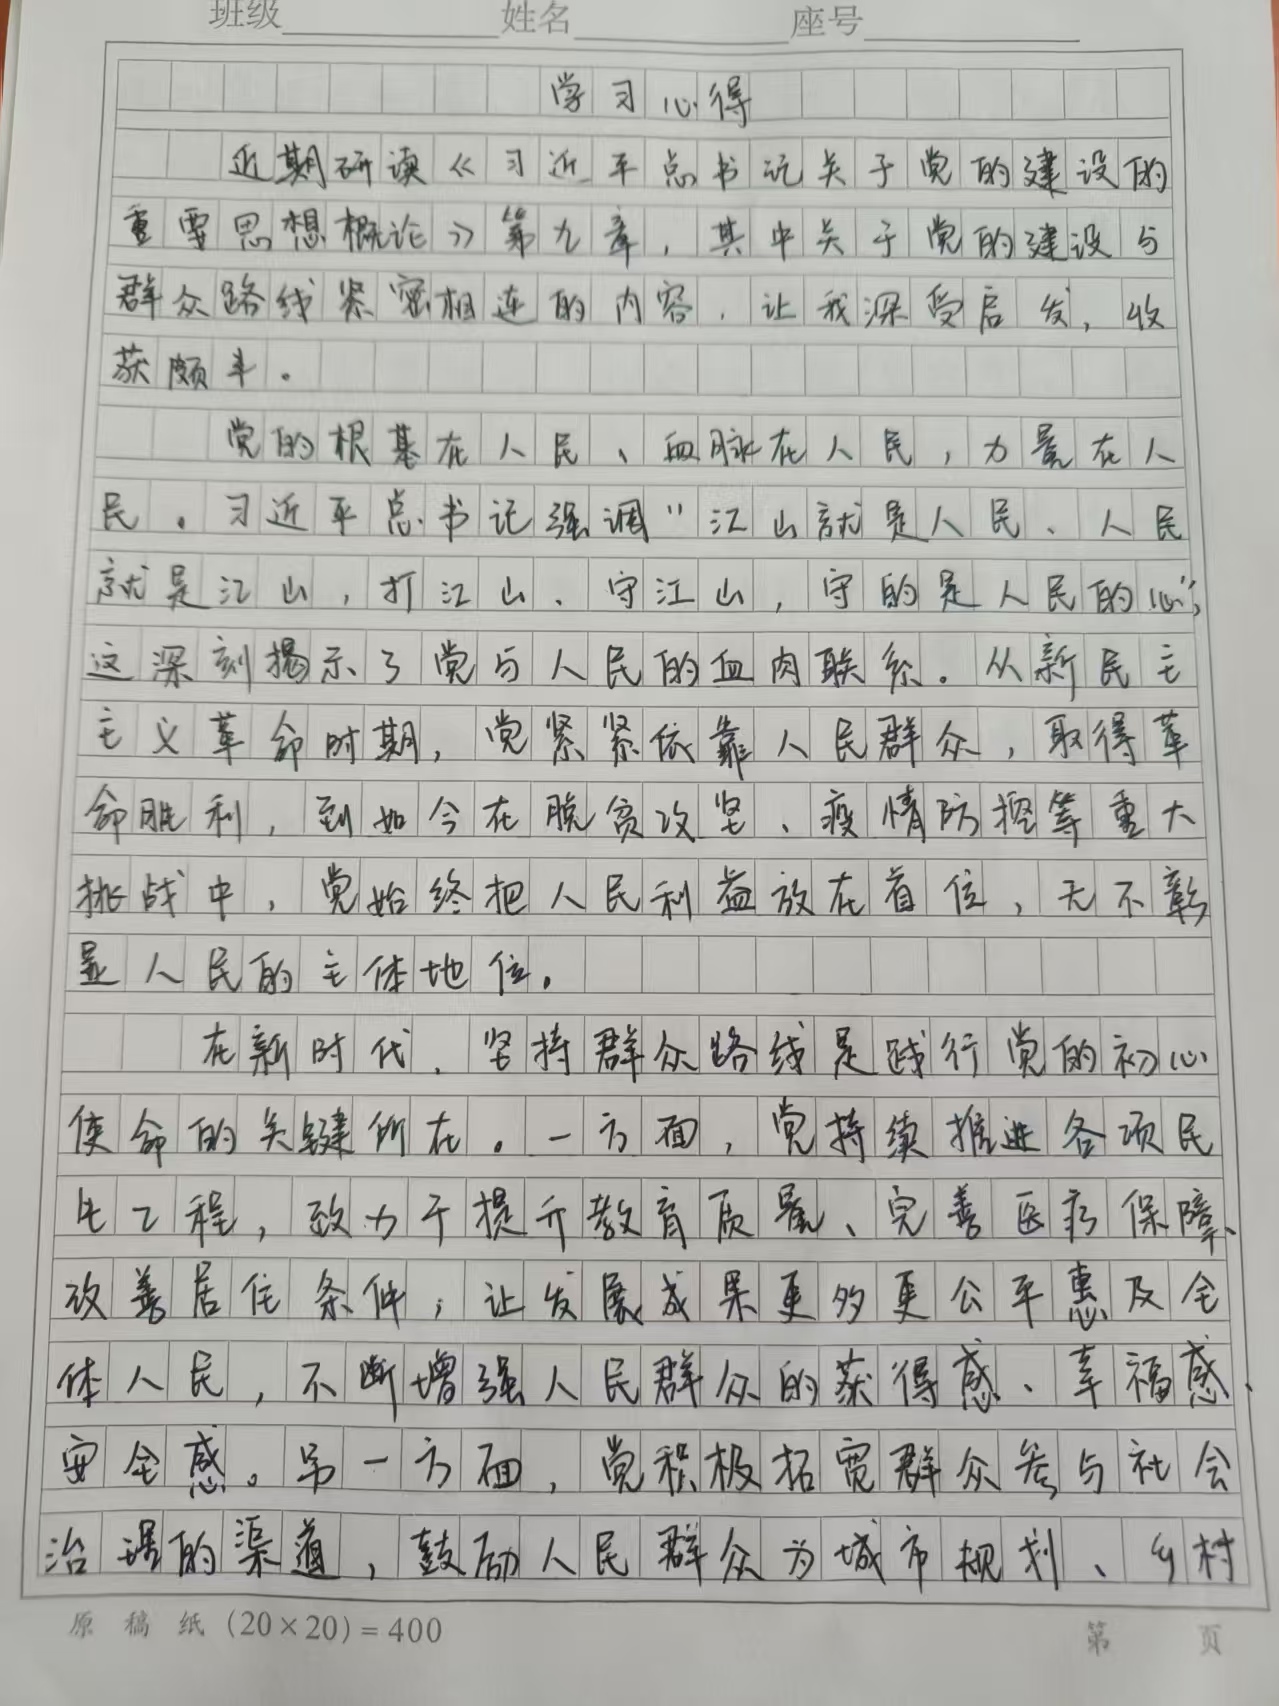 班级 姓名 座号
学习心得
近期研读《习近平总书记关于党的建设的
重要思想概论》第九章，其中关于党的建设与
群众路线紧密相连的内容，让我深受启发，收
获颇丰。
党的根基在人民、血脉在人民，力量在人
民。习近平总书记强调“江山就是人民、人民
就是江山，打江山、守江山，守的是人民的心”，
这深刻揭示了党与人民的血肉联系。从新民主
主义革命时期，党紧紧依靠人民群众，取得革
命胜利，到如今在脱贫攻坚、疫情防控等重大
挑战中，党始终把人民利益放在首位，无不彰
显人民的主体地位。
在新时代，坚持群众路线是践行党的初心
使命的关键所在。一方面，党持续推进各项民
生工程，致力于提升教育质量、完善医疗保障、
改善居住条件，让发展成果更多更公平惠及全
体人民，不断增强人民群众的获得感、幸福感、
安全感。另一方面，党积极拓宽群众参与社会
治理的渠道，鼓励人民群众为城市规划、乡村
原稿纸(20×20)=400 第 页